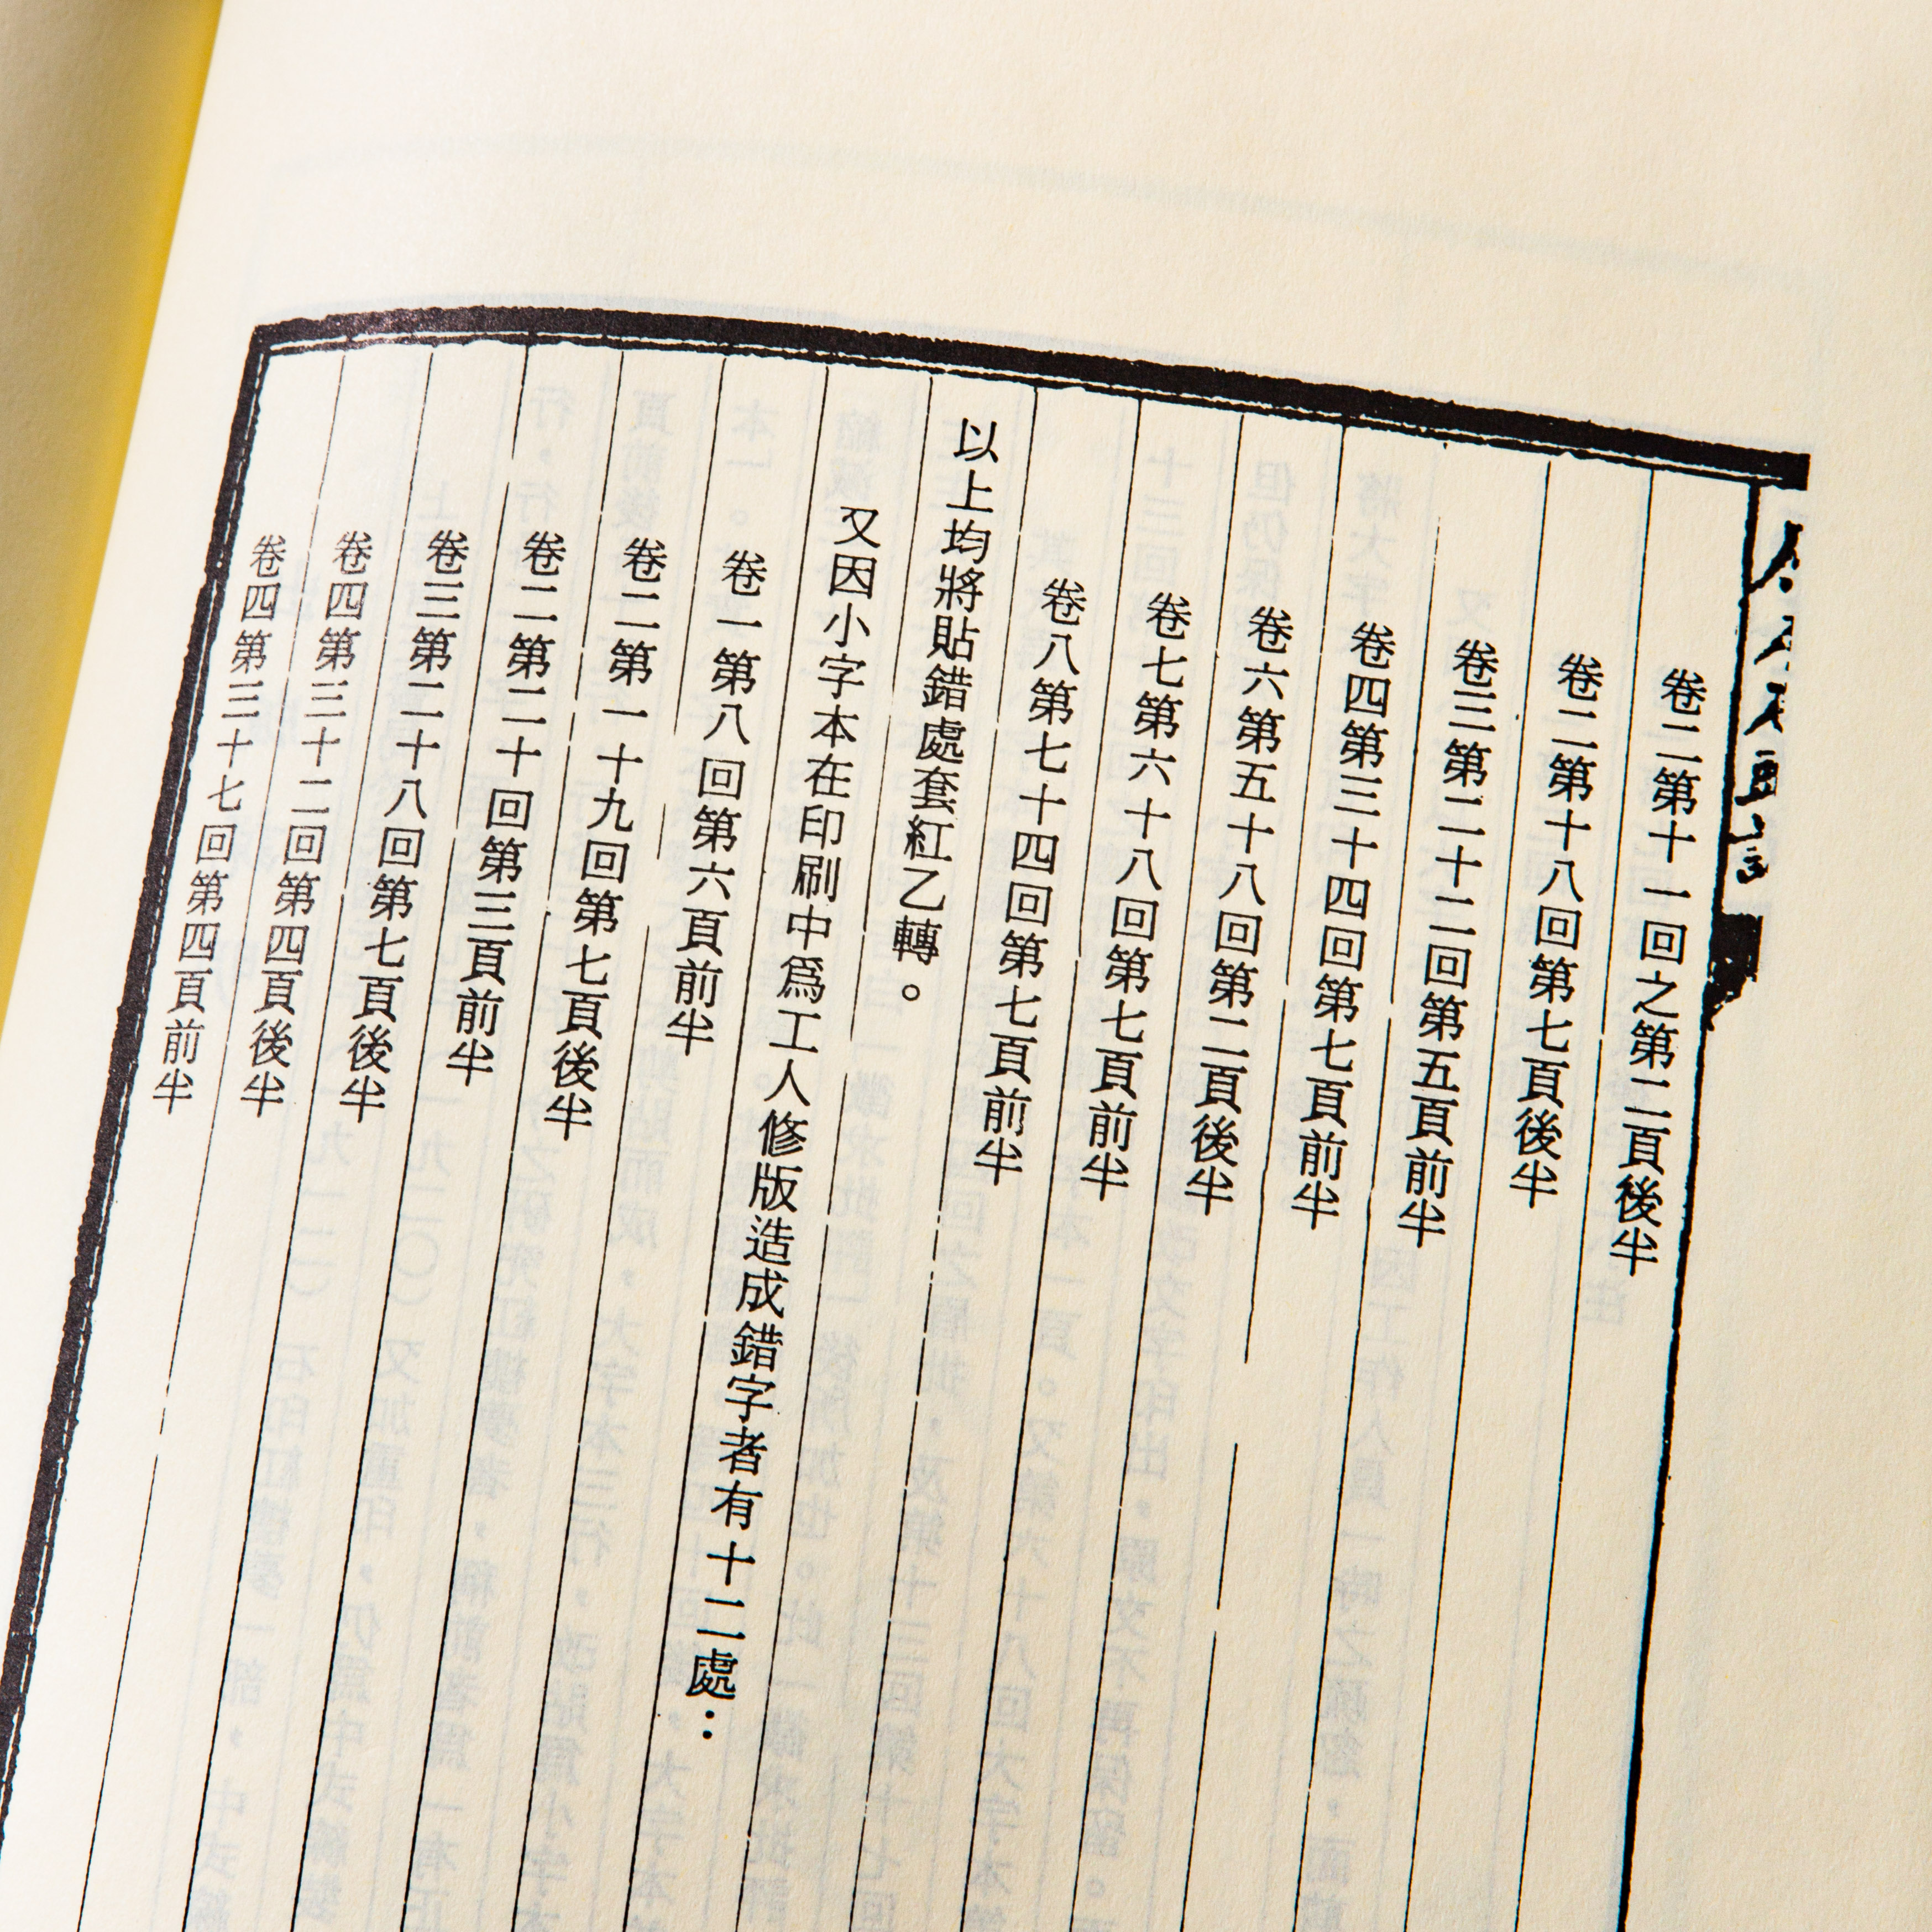 卷二第十一回之第二頁後半
卷二第十八回第七頁後半
卷三第二十二回第五頁前半
卷四第三十四回第七頁前半
卷六第五十八回第二頁後半
卷七第六十八回第七頁前半
卷八第七十四回第七頁前半
以上均將貼錯處套紅乙轉。
又因小字本在印刷中爲工人修版造成錯字者有十二處：
卷一第八回第六頁前半
卷二第一十九回第七頁後半
卷二第二十回第三頁前半
卷三第二十八回第七頁後半
卷四第三十二回第四頁後半
卷四第三十七回第四頁前半